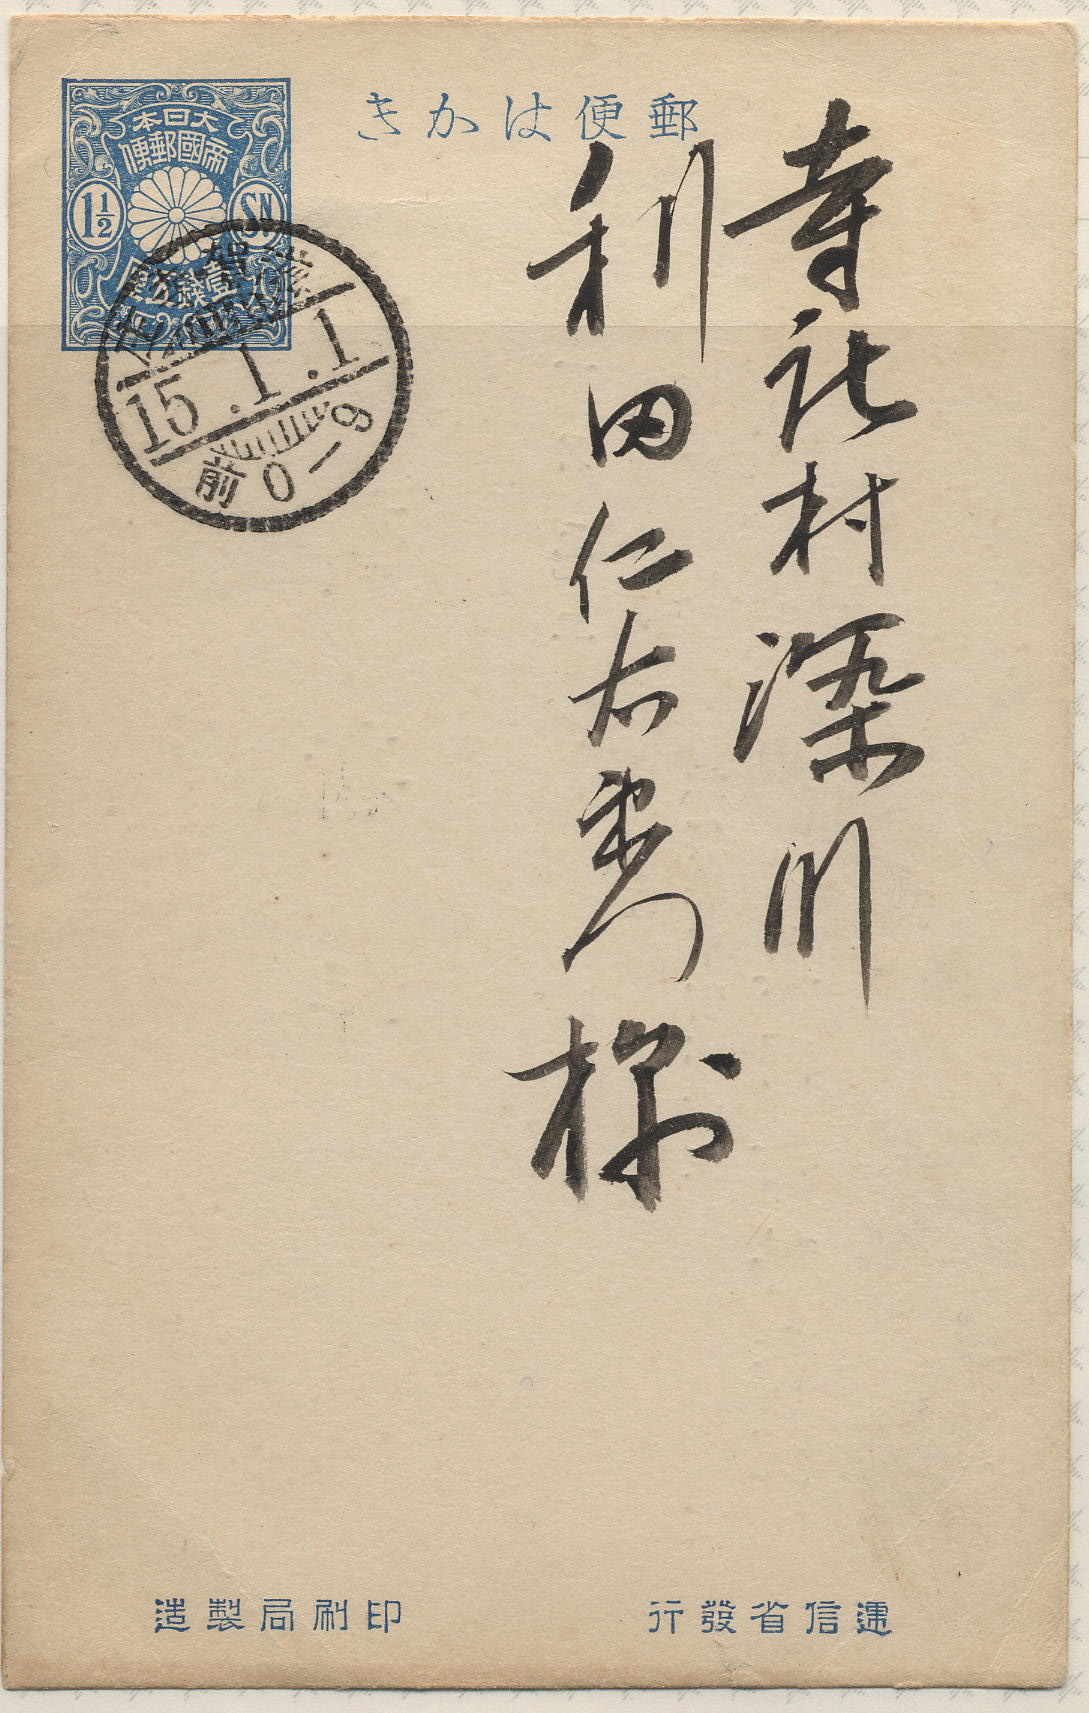 郵便はかき
大日本
帝國郵便
1½
SN
壹錢五厘
15.1.1
前0-9
寺社村深川
利田仁右衛門様
遞信省發行
印刷局製造